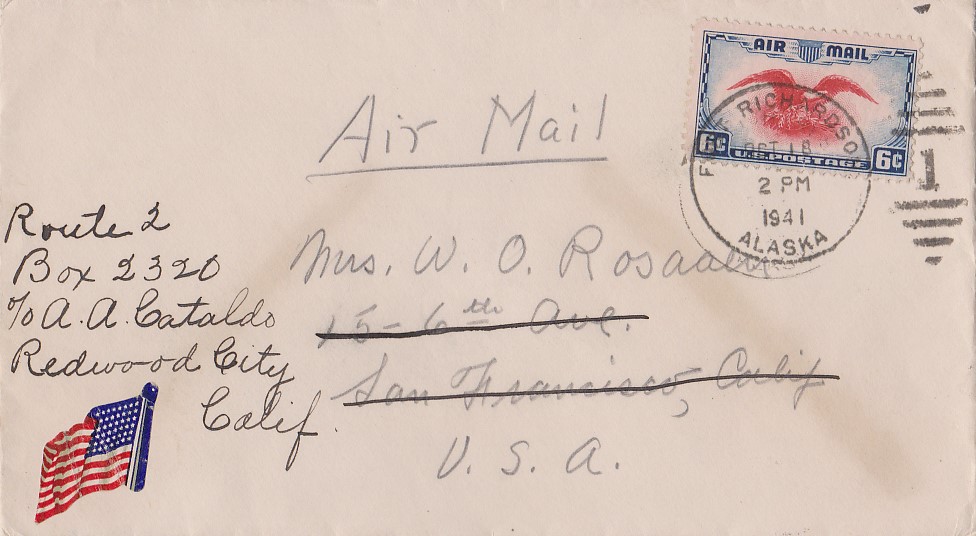 AIR MAIL
6¢ U.S. POSTAGE 6¢
FORT RICHARDSON
OCT 18
2 PM
1941
ALASKA
1
Air Mail
Mrs. W. O.
15 - 6th Ave.
San Francisco, Calif
U. S. A.
Route 2
Box 2320
c/o A. A. Cataldo
Redwood City
Calif.